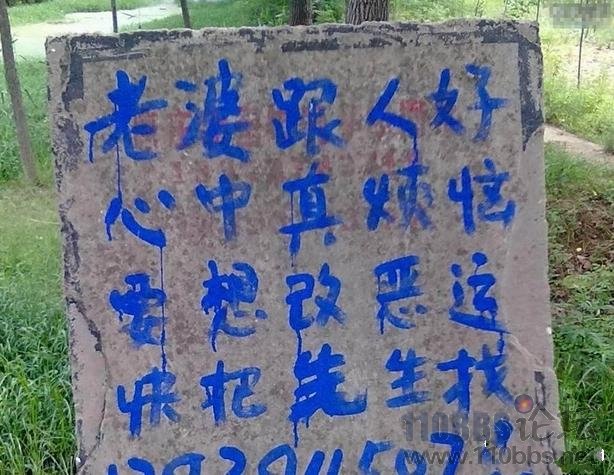 老婆跟人好
心中真烦恼
要想改恶运
快把先生找
110BBS论坛
www.110bbs.net